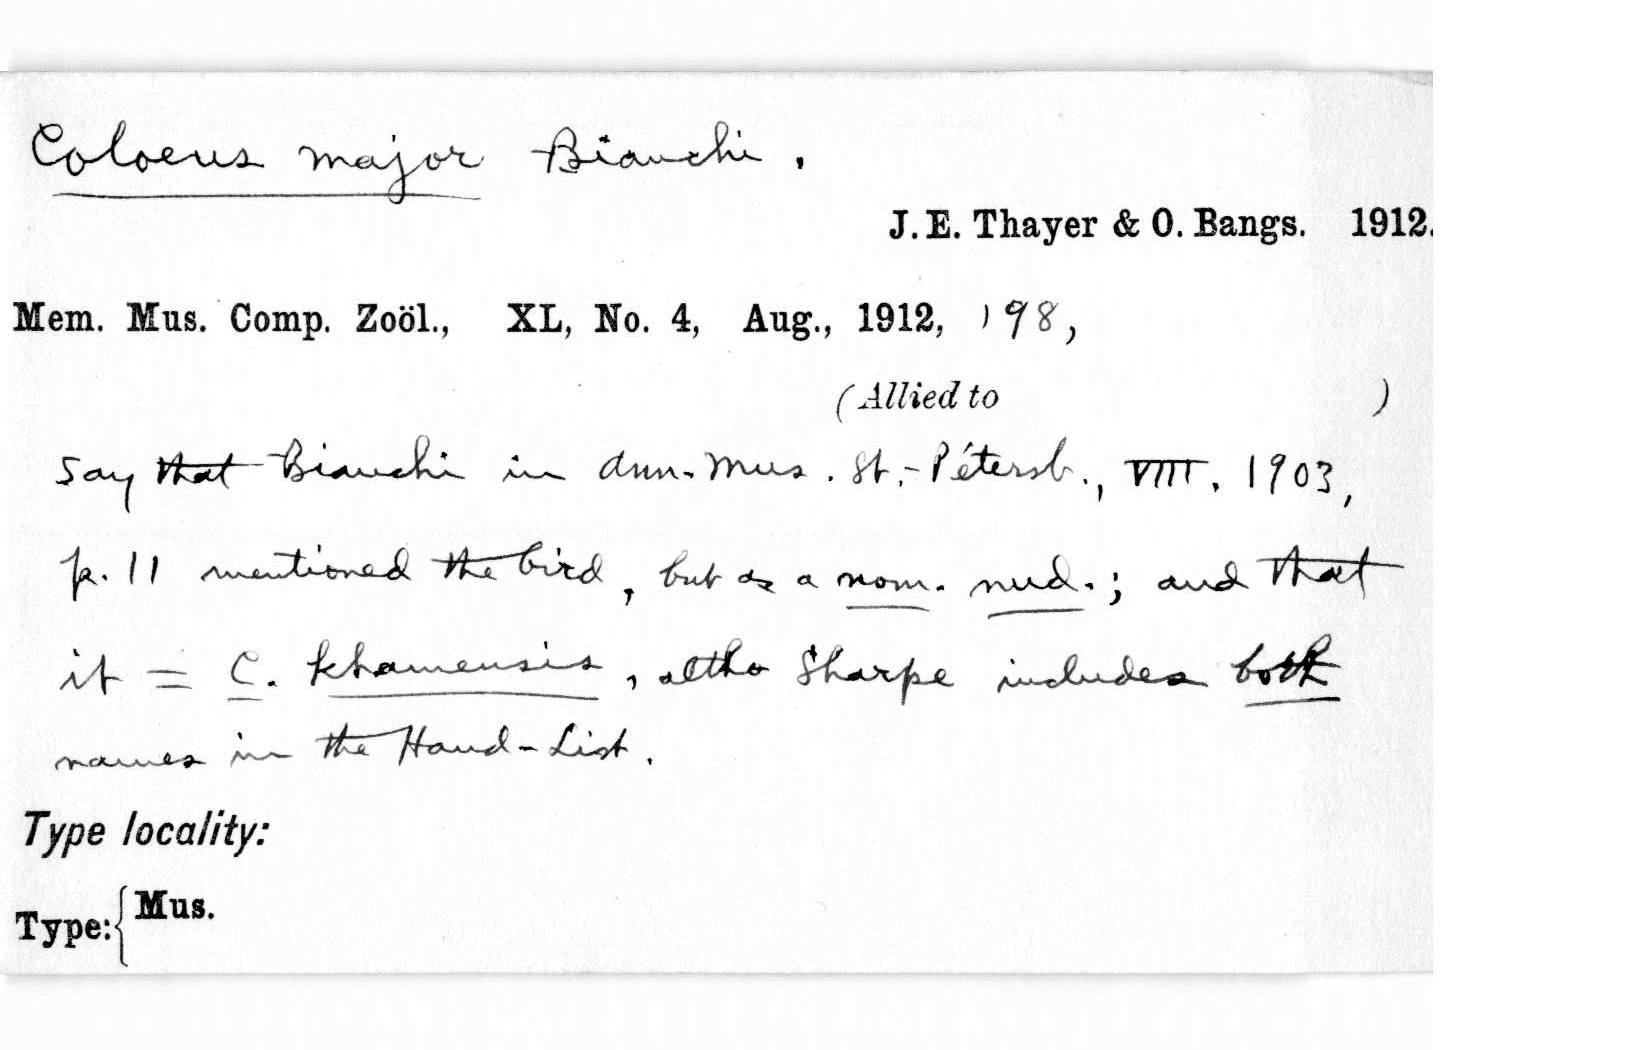 Coloeus major Bianchi.
J. E. Thayer & O. Bangs. 1912.
Mem. Mus. Comp. Zoöl., XL, No. 4, Aug., 1912, 198,
(Allied to )
say that Bianchi in Ann. Mus. St.-Pétersb., VIII, 1903,
p. 11 mentioned the bird, but as a nom. nud.; and that
it = C. khamensis, altho Sharpe includes both
names in the Hand-List.
Type locality:
Type: { Mus.